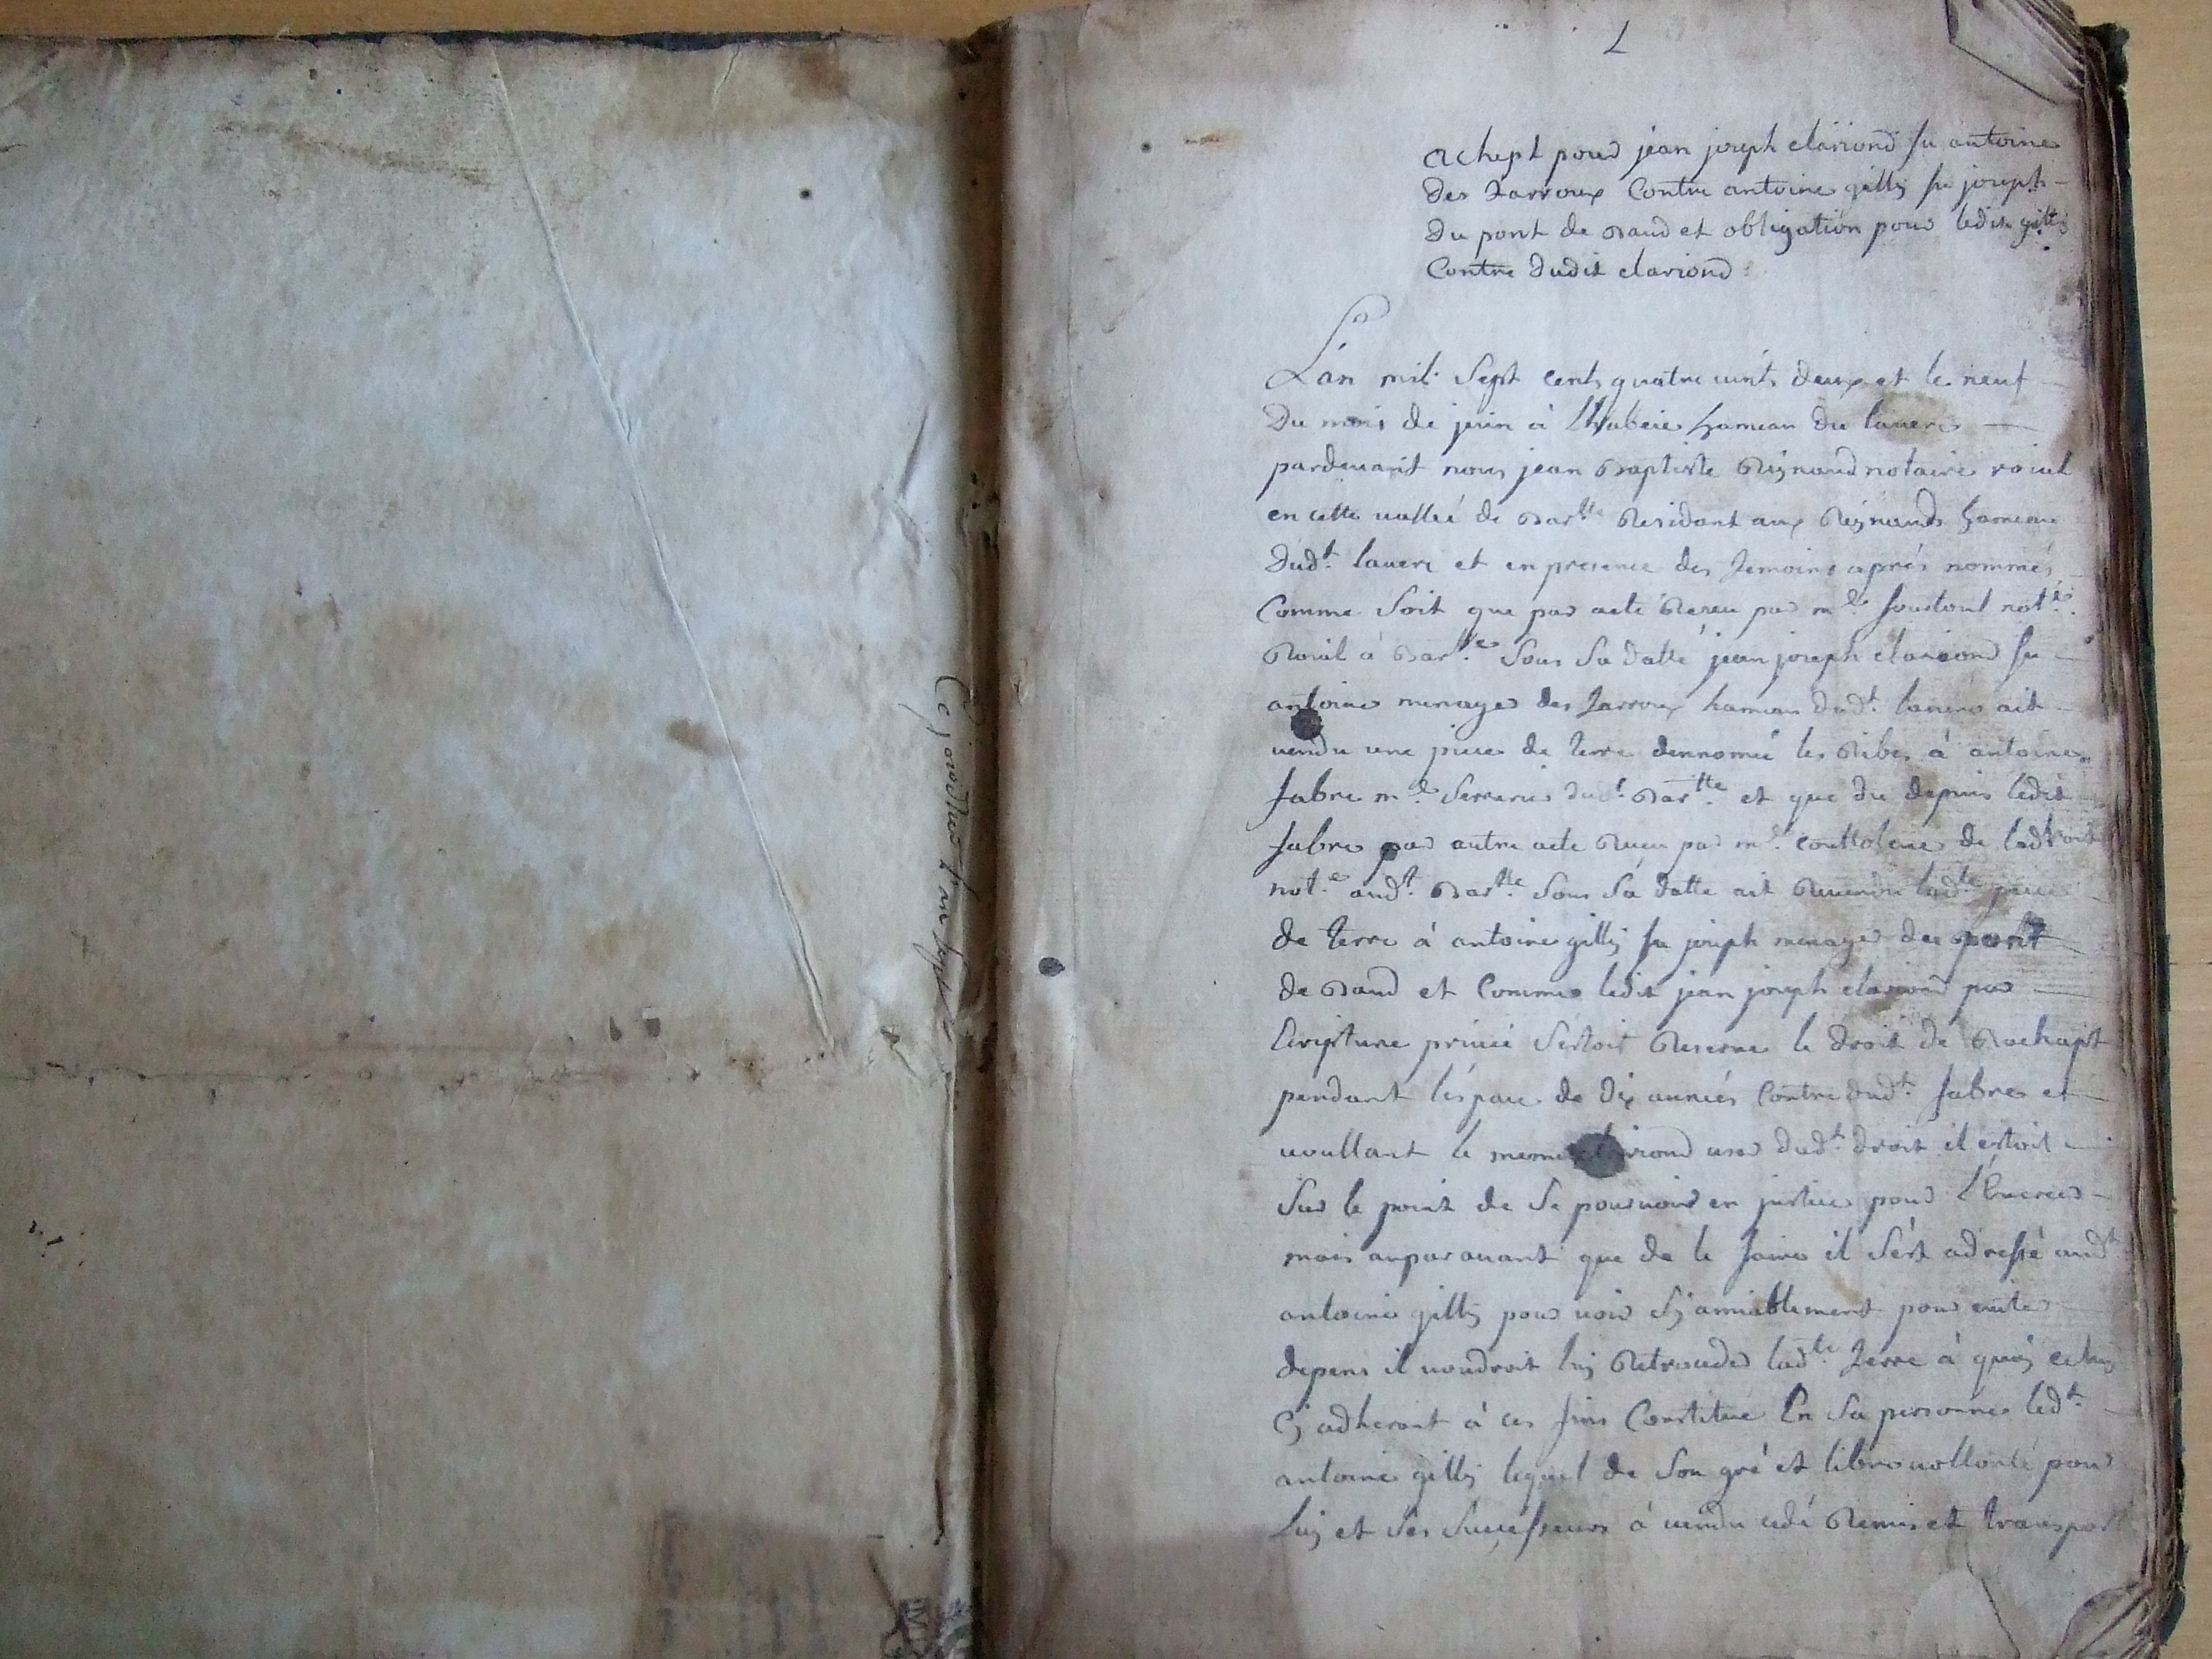 achept pour jean joseph clariond fu antoine
des Jarroux Contre antoine gilly fu joseph
Du pont de Baud et obligation pour ledit gilly
Contre dudit clariond
L'an mil sept cents quatre vints deux et le neuf
Du mois de juin à Lhubeie hameau du laverc
pardevant nous jean Baptiste Reynaud notaire roial
en cette vallée de Bartte Residant aux Reynauds hameau
dudt. laverc et en presence des temoins après nommés
Comme soit que par acte Receu par me. notre.
Roial à Bartte. sous sa datte jean joseph clariond fu
antoine menager des Jarroux hameau dudt. laverc ait
vendu une piece de terre dennomée les Ribes à antoine
fabre me. serrurier dudt. Bartte. et que du depuis ledit
fabre par autre acte Receu par me. de
note. audt. Bartte. sous sa datte ait Revendu ladte. piece
de terre à antoine gilly fu joseph menager du pont
de Baud et comme ledit jean joseph clariond par
Ecripture privée s'estoit Reserve le droit de Rachapt
pendant l'espace de dix années contre dudt. fabre et
voullant le meme clariond user dudt. droit il estoit
sur le point de se pourvoir en justice pour l'Exercer
mais auparavant que de le faire il s'est adressé audt
antoine gilly pour voir sy amiablement pour eviter
depens il voudroit luy Retroceder ladte. terre à quoy
y adherant à ces fins Constitué En sa personne ledt.
antoine gilly lequel de son gré et libre vollonté pour
luy et ses successeurs à vendu cedé Remis et transpor